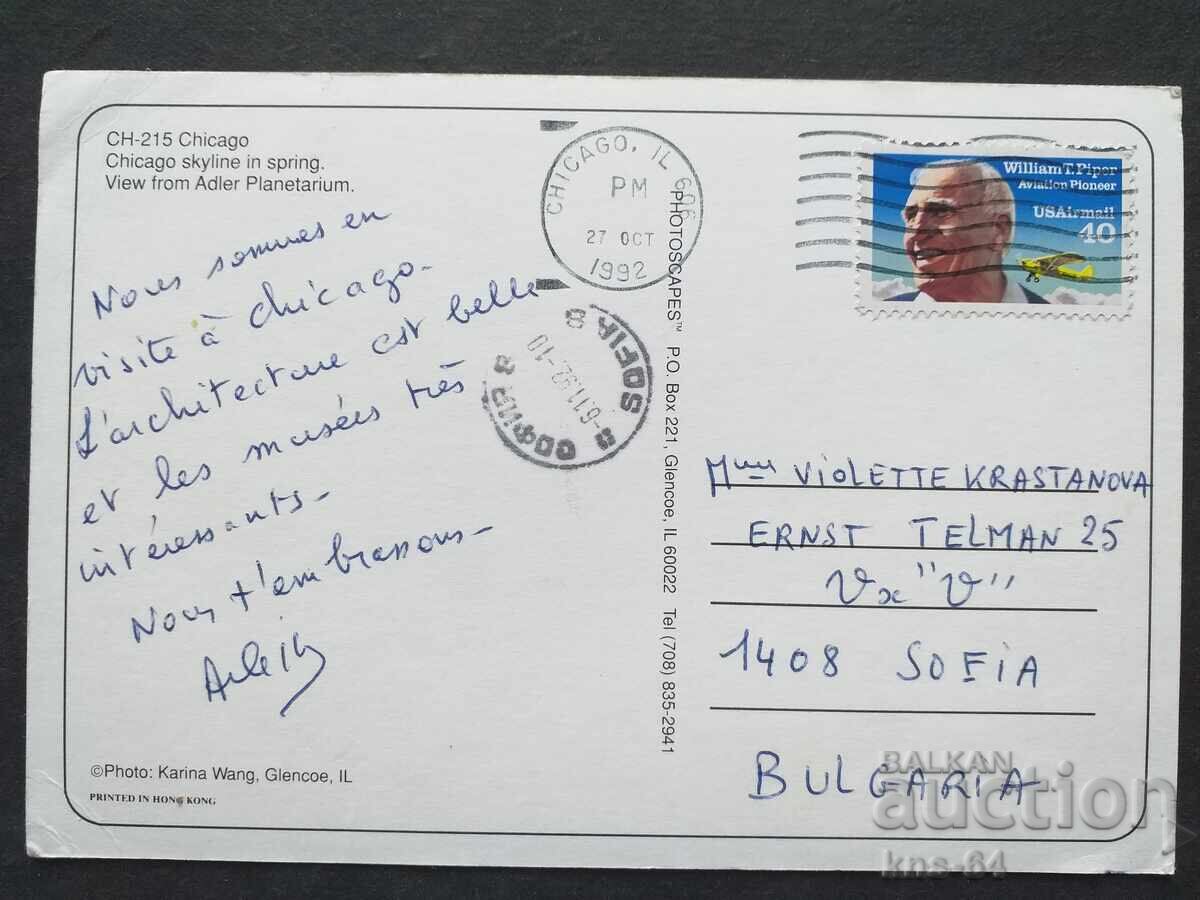 CH-215 Chicago
Chicago skyline in spring.
View from Adler Planetarium.
Nous sommes en
visite à chicago.
L'architecture est belle
et les musées très
intéressants -
Nous t'embrassons -
©Photo: Karina Wang, Glencoe, IL
PRINTED IN HONG KONG
CHICAGO, IL 606
PM
27 OCT
1992
SOFIA 8
-6.11.92-10
СОФИЯ 8
PHOTOSCAPES™ P.O. Box 221, Glencoe, IL 60022 Tel (708) 835-2941
William T. Piper
Aviation Pioneer
USAirmail
40
Mme VIOLETTE KRASTANOVA
ERNST TELMAN 25
Vx "V"
1408 SOFIA
BULGARIA
BALKAN
auction
kns-64